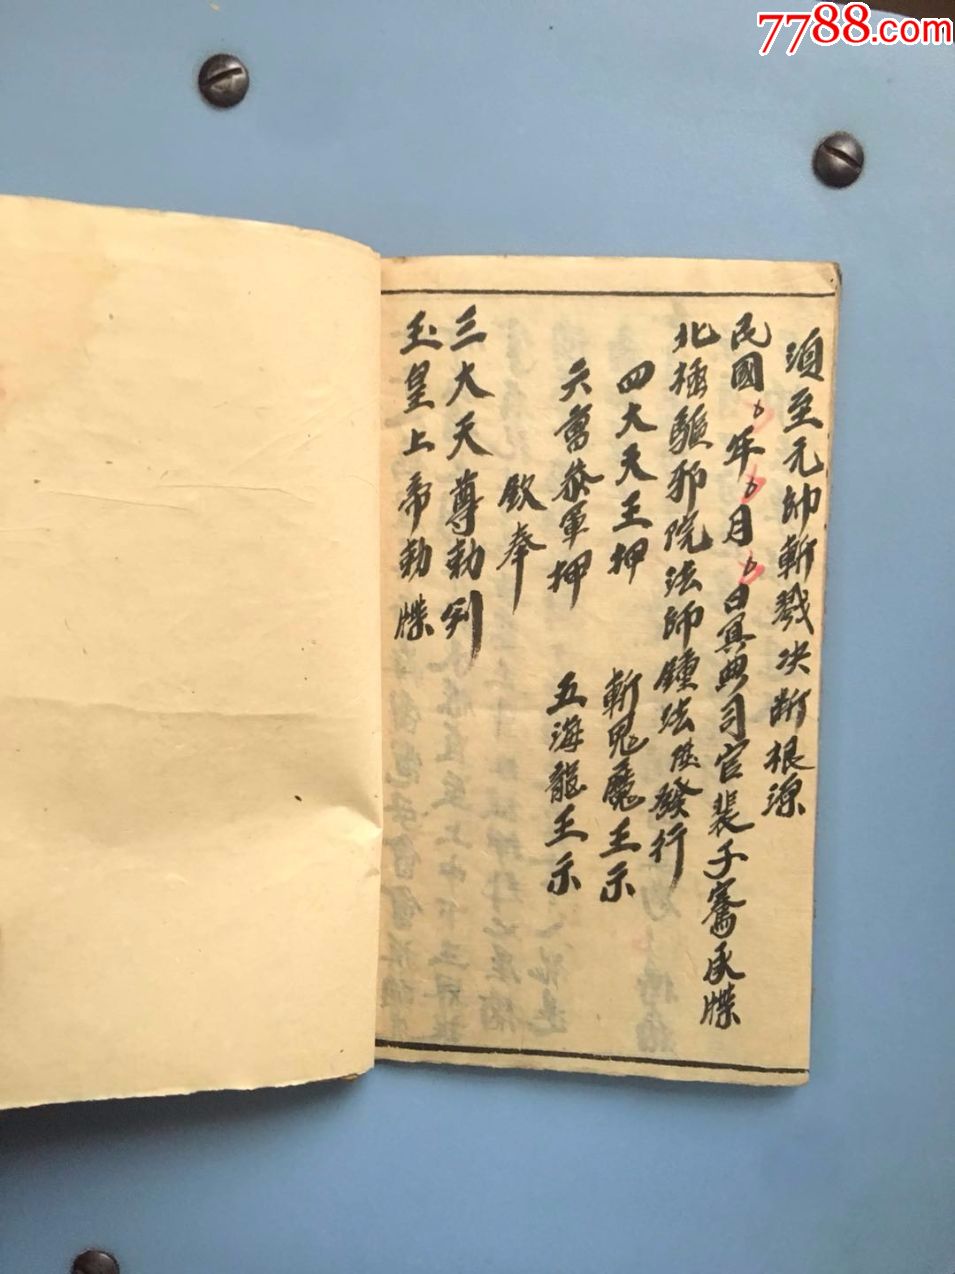 7788.com
須至元帥斬戮决断根源
民國 年 月 日冥典司官裴子騫承牒
北極驅邪院法師鍾法 發行
四大天王押 斬鬼魔王示
六曹叅軍押 五海龍王示
欽奉
三大天尊勅判
玉皇上帝勅牒